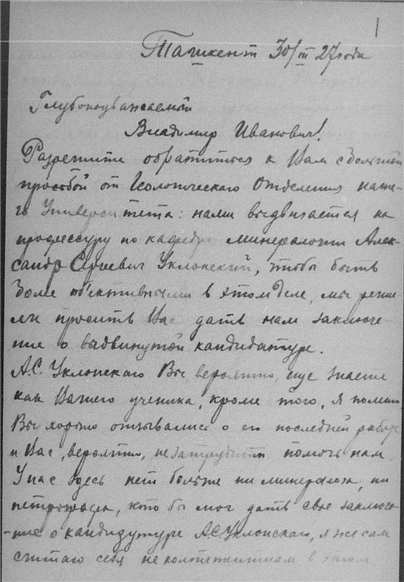 1
Ташкент 30/III 27 года
Глубокоуважаемый
Владимир Иванович!
Разрешите обратиться к Вам с большой
просьбой от Геологического Отделения наше-
го Университета: нами выдвигается на
профессуру по кафедре минералогии Алек-
сандр Сергеевич Уклонский, чтобы быть
более объективными в этом деле, мы реши
ли просить Вас дать нам заключе-
ние о выдвинутой кандидатуре.
А.С. Уклонского Вы, вероятно, еще знаете
как Вашего ученика, кроме того, я помню
Вы хорошо отзывались о его последней работе
и Вас, вероятно, не затруднит помочь нам.
У нас здесь нет больше ни минералога, ни
петрографа, кто бы мог дать свое заключе-
-ние о кандидатуре А.С. Уклонского, я же сам
считаю себя не компетентным в этом